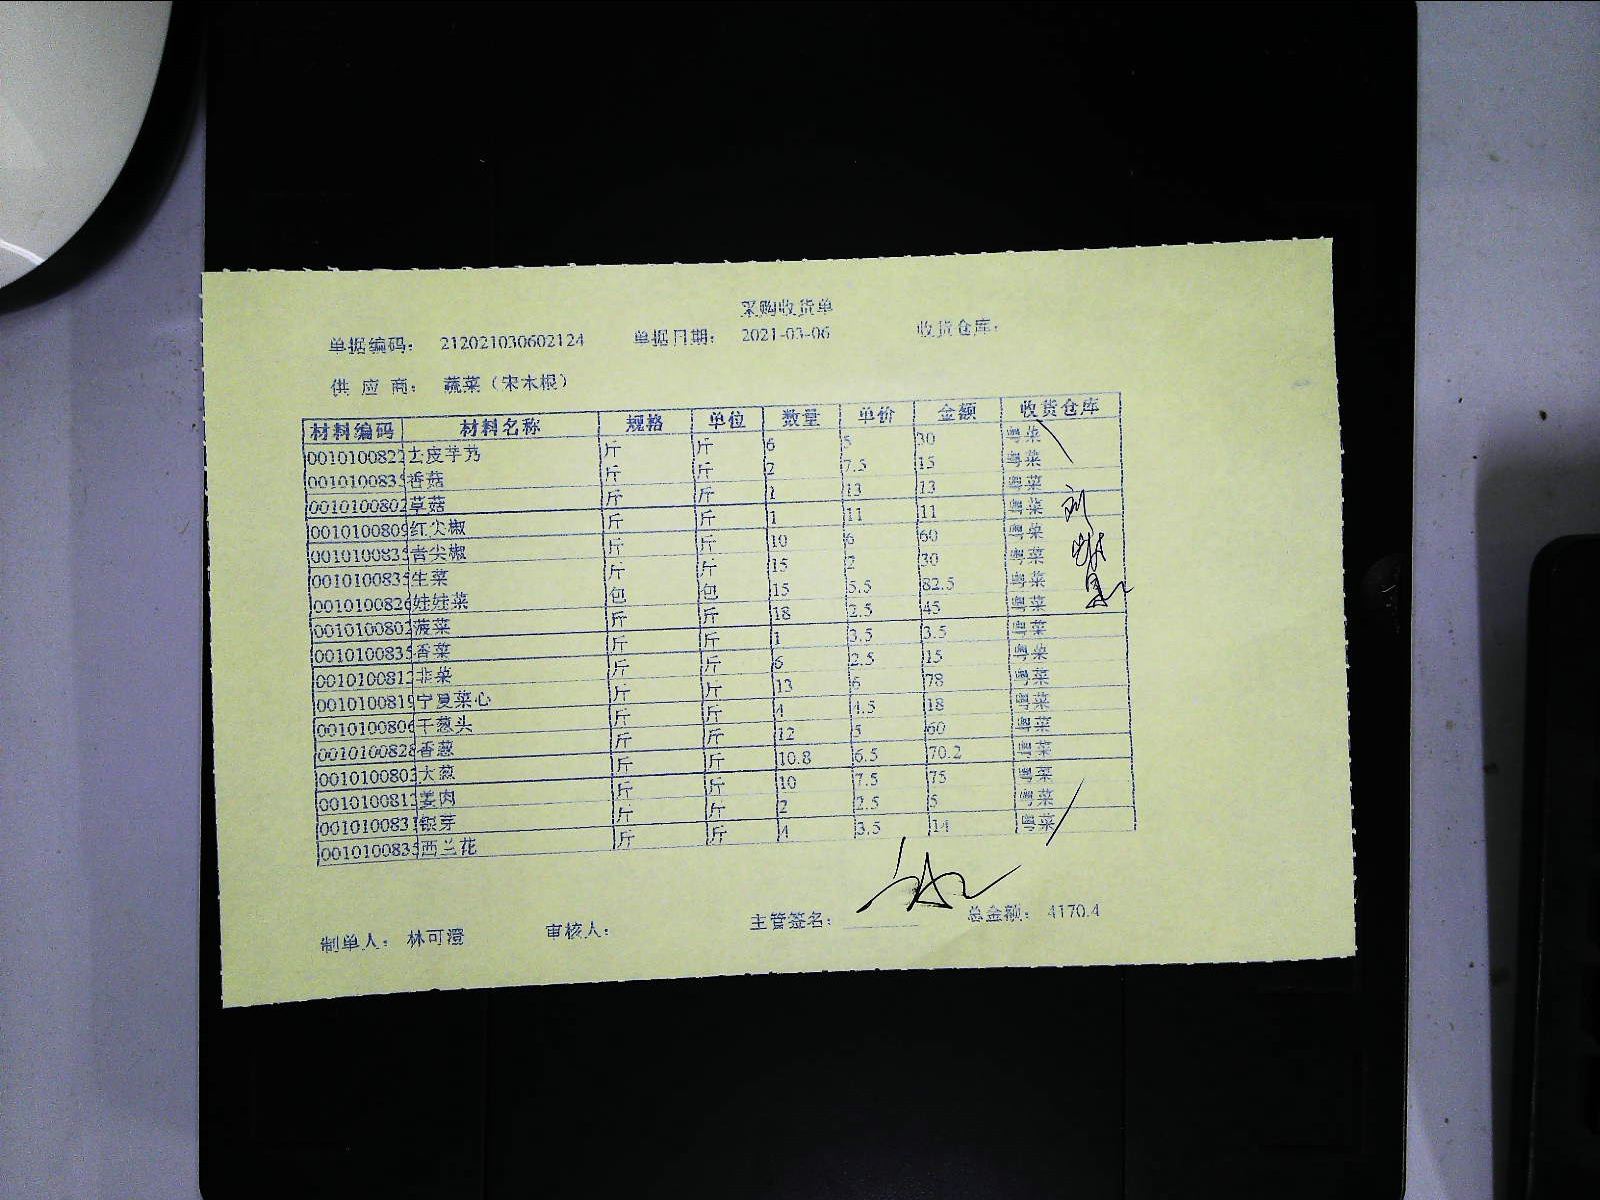 采购收货单
单据编码： 212021030602124 单据日期： 2021-03-06 收货仓库：
供 应 商： 蔬菜（宋木根）
材料编码 材料名称 规格 单位 数量 单价 金额 收货仓库
0010100822 皮芋艿 斤 斤 6 5 30 粤菜
0010100835 香菇 斤 斤 2 7.5 15 粤菜
0010100802 草菇 斤 斤 1 13 13 粤菜
0010100809 红尖椒 斤 斤 1 11 11 粤菜
0010100835 青尖椒 斤 斤 10 6 60 粤菜
0010100835 生菜 斤 斤 15 2 30 粤菜
0010100826 娃娃菜 包 包 15 5.5 82.5 粤菜
0010100802 菠菜 斤 斤 18 2.5 45 粤菜
0010100835 香菜 斤 斤 1 3.5 3.5 粤菜
0010100812 韭菜 斤 斤 6 2.5 15 粤菜
0010100819 宁夏菜心 斤 斤 13 6 78 粤菜
0010100806 干葱头 斤 斤 4 4.5 18 粤菜
0010100828 香葱 斤 斤 12 5 60 粤菜
0010100803 大葱 斤 斤 10.8 6.5 70.2 粤菜
0010100813 姜肉 斤 斤 10 7.5 75 粤菜
0010100831 银芽 斤 斤 2 2.5 5 粤菜
0010100835 西兰花 斤 斤 4 3.5 14 粤菜
制单人： 林可澄 审核人： 主管签名： 总金额： 4170.4